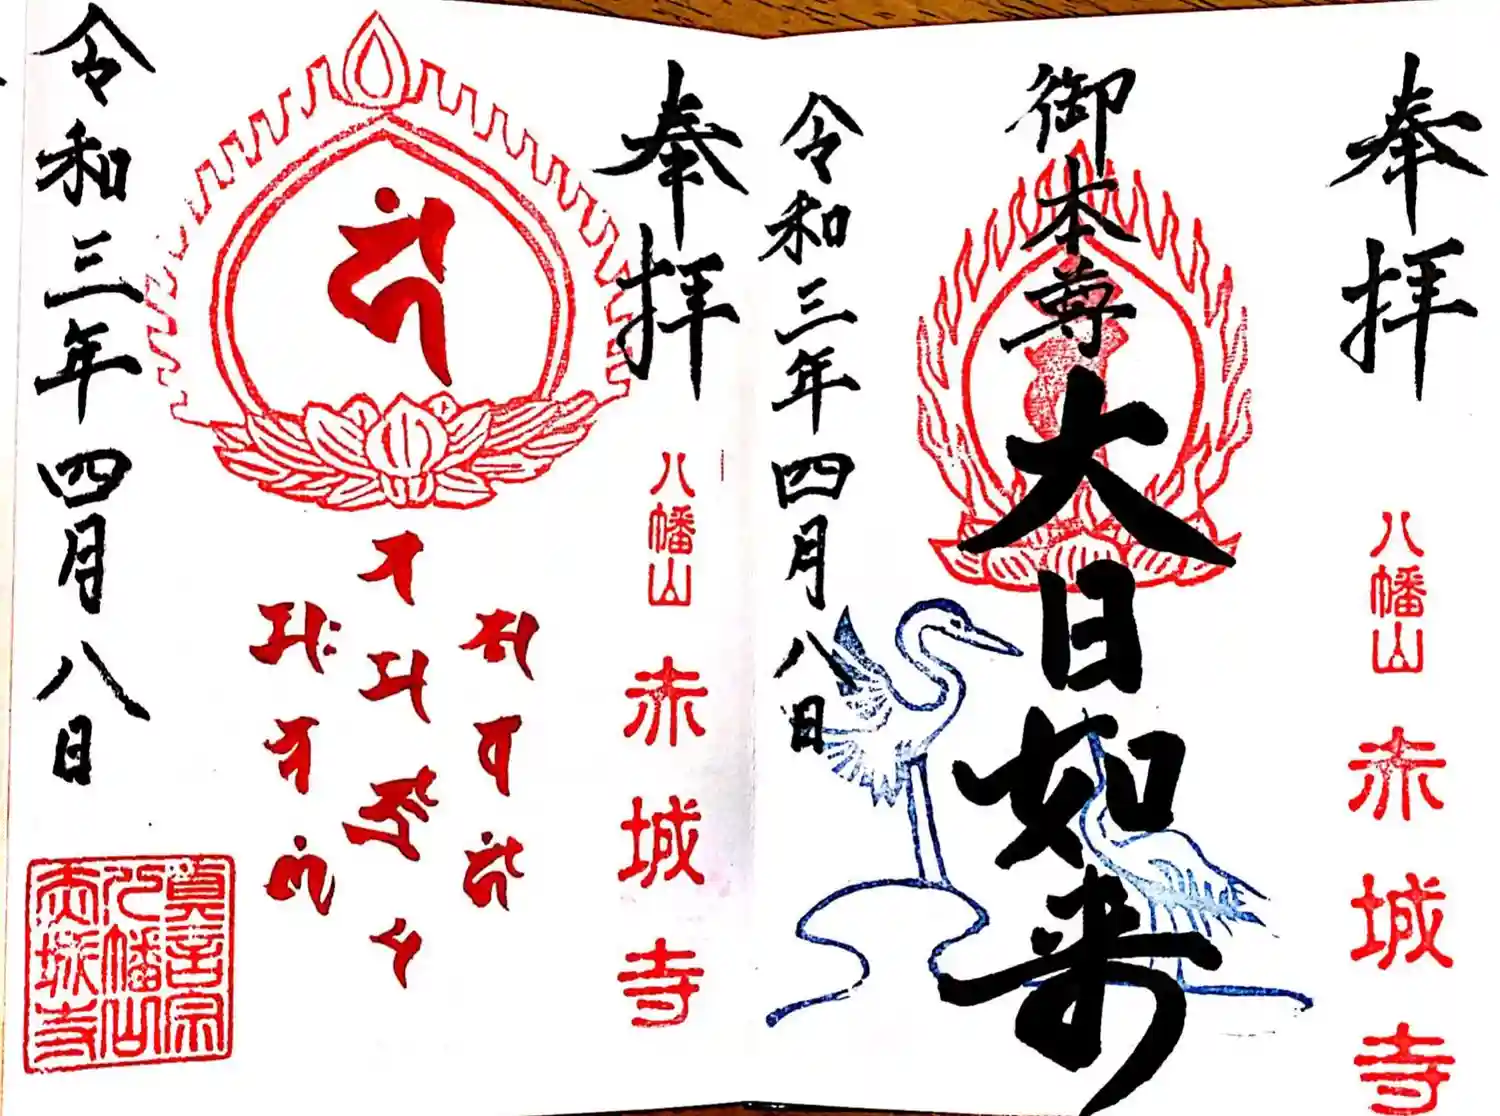 奉拝
八幡山
赤城寺
御本尊
大日如来
令和三年四月八日
奉拝
八幡山
赤城寺
令和三年四月八日
真言宗
八幡山
赤城寺